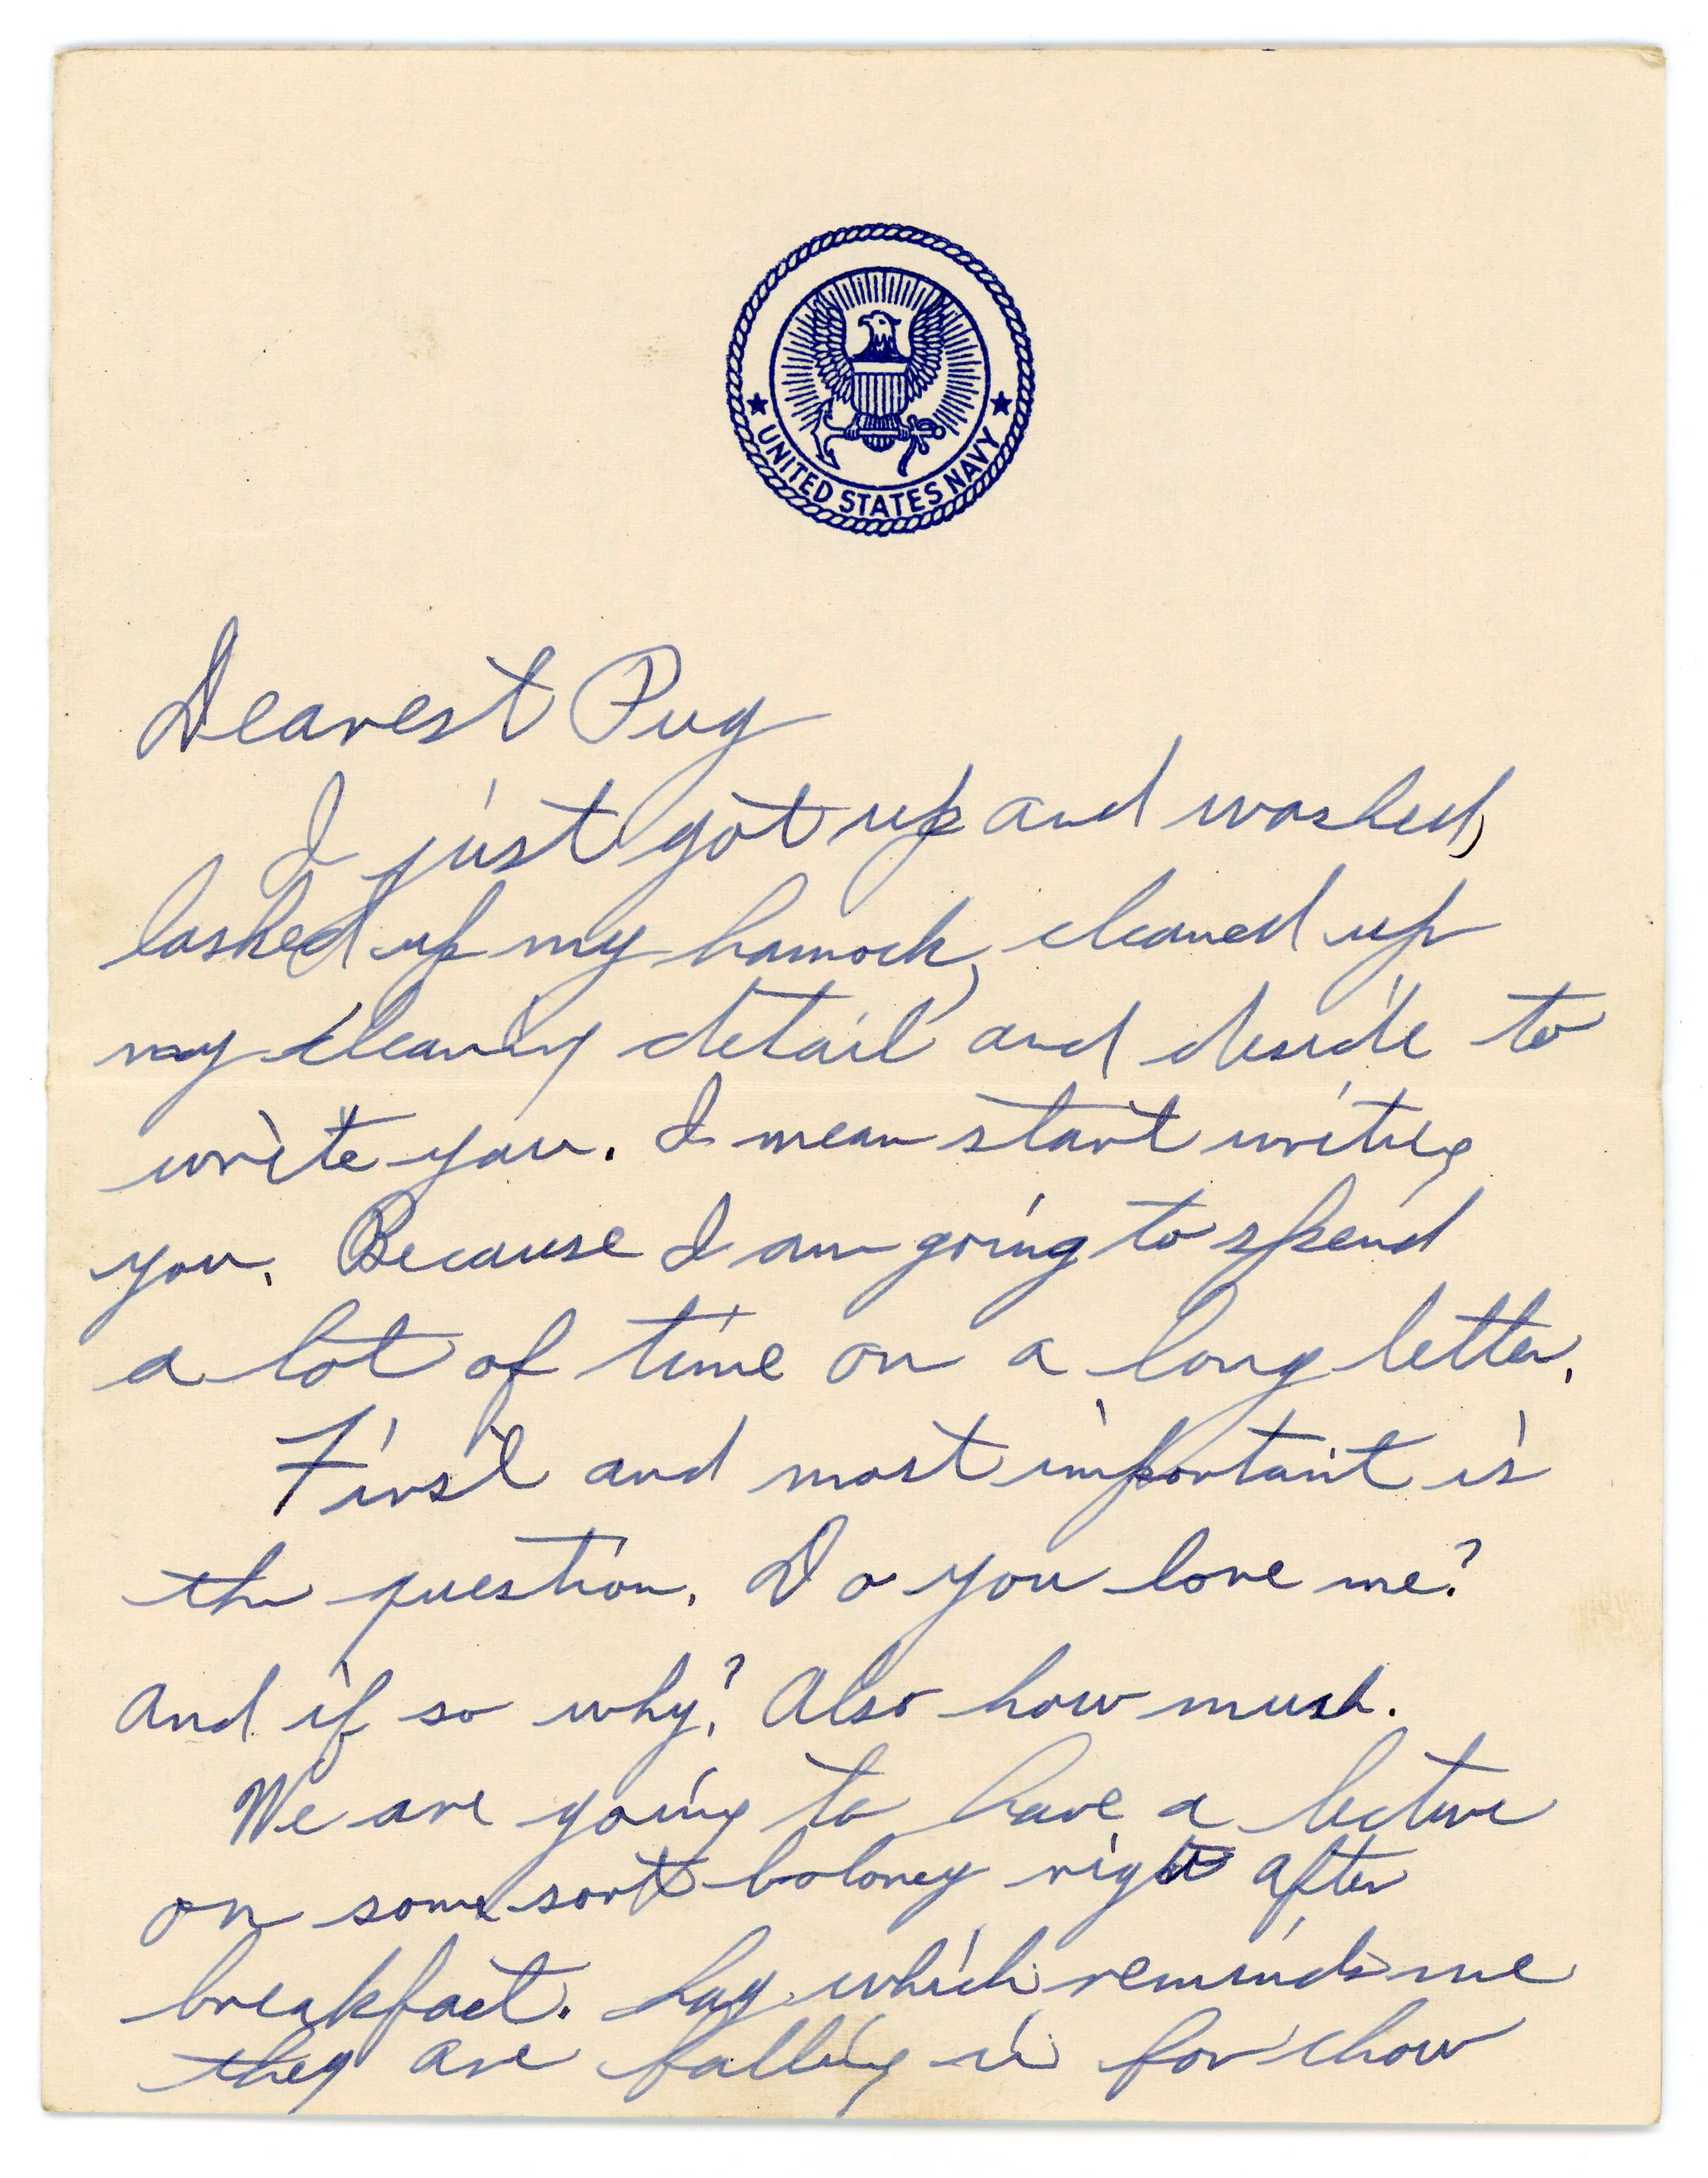 UNITED STATES NAVY
Dearest Pug
I just got up and washed,
lashed up my hamock, cleaned up
my cleaning detail and deside to
write you. I mean start writing
you. Because I am going to spend
a lot of time on a long letter.
First and most important is
the question. Do you love me?
And if so why? Also how much.
We are going to have a lecture
on some sort boloney right after
breakfast. Say which reminds me
they are falling in for chow